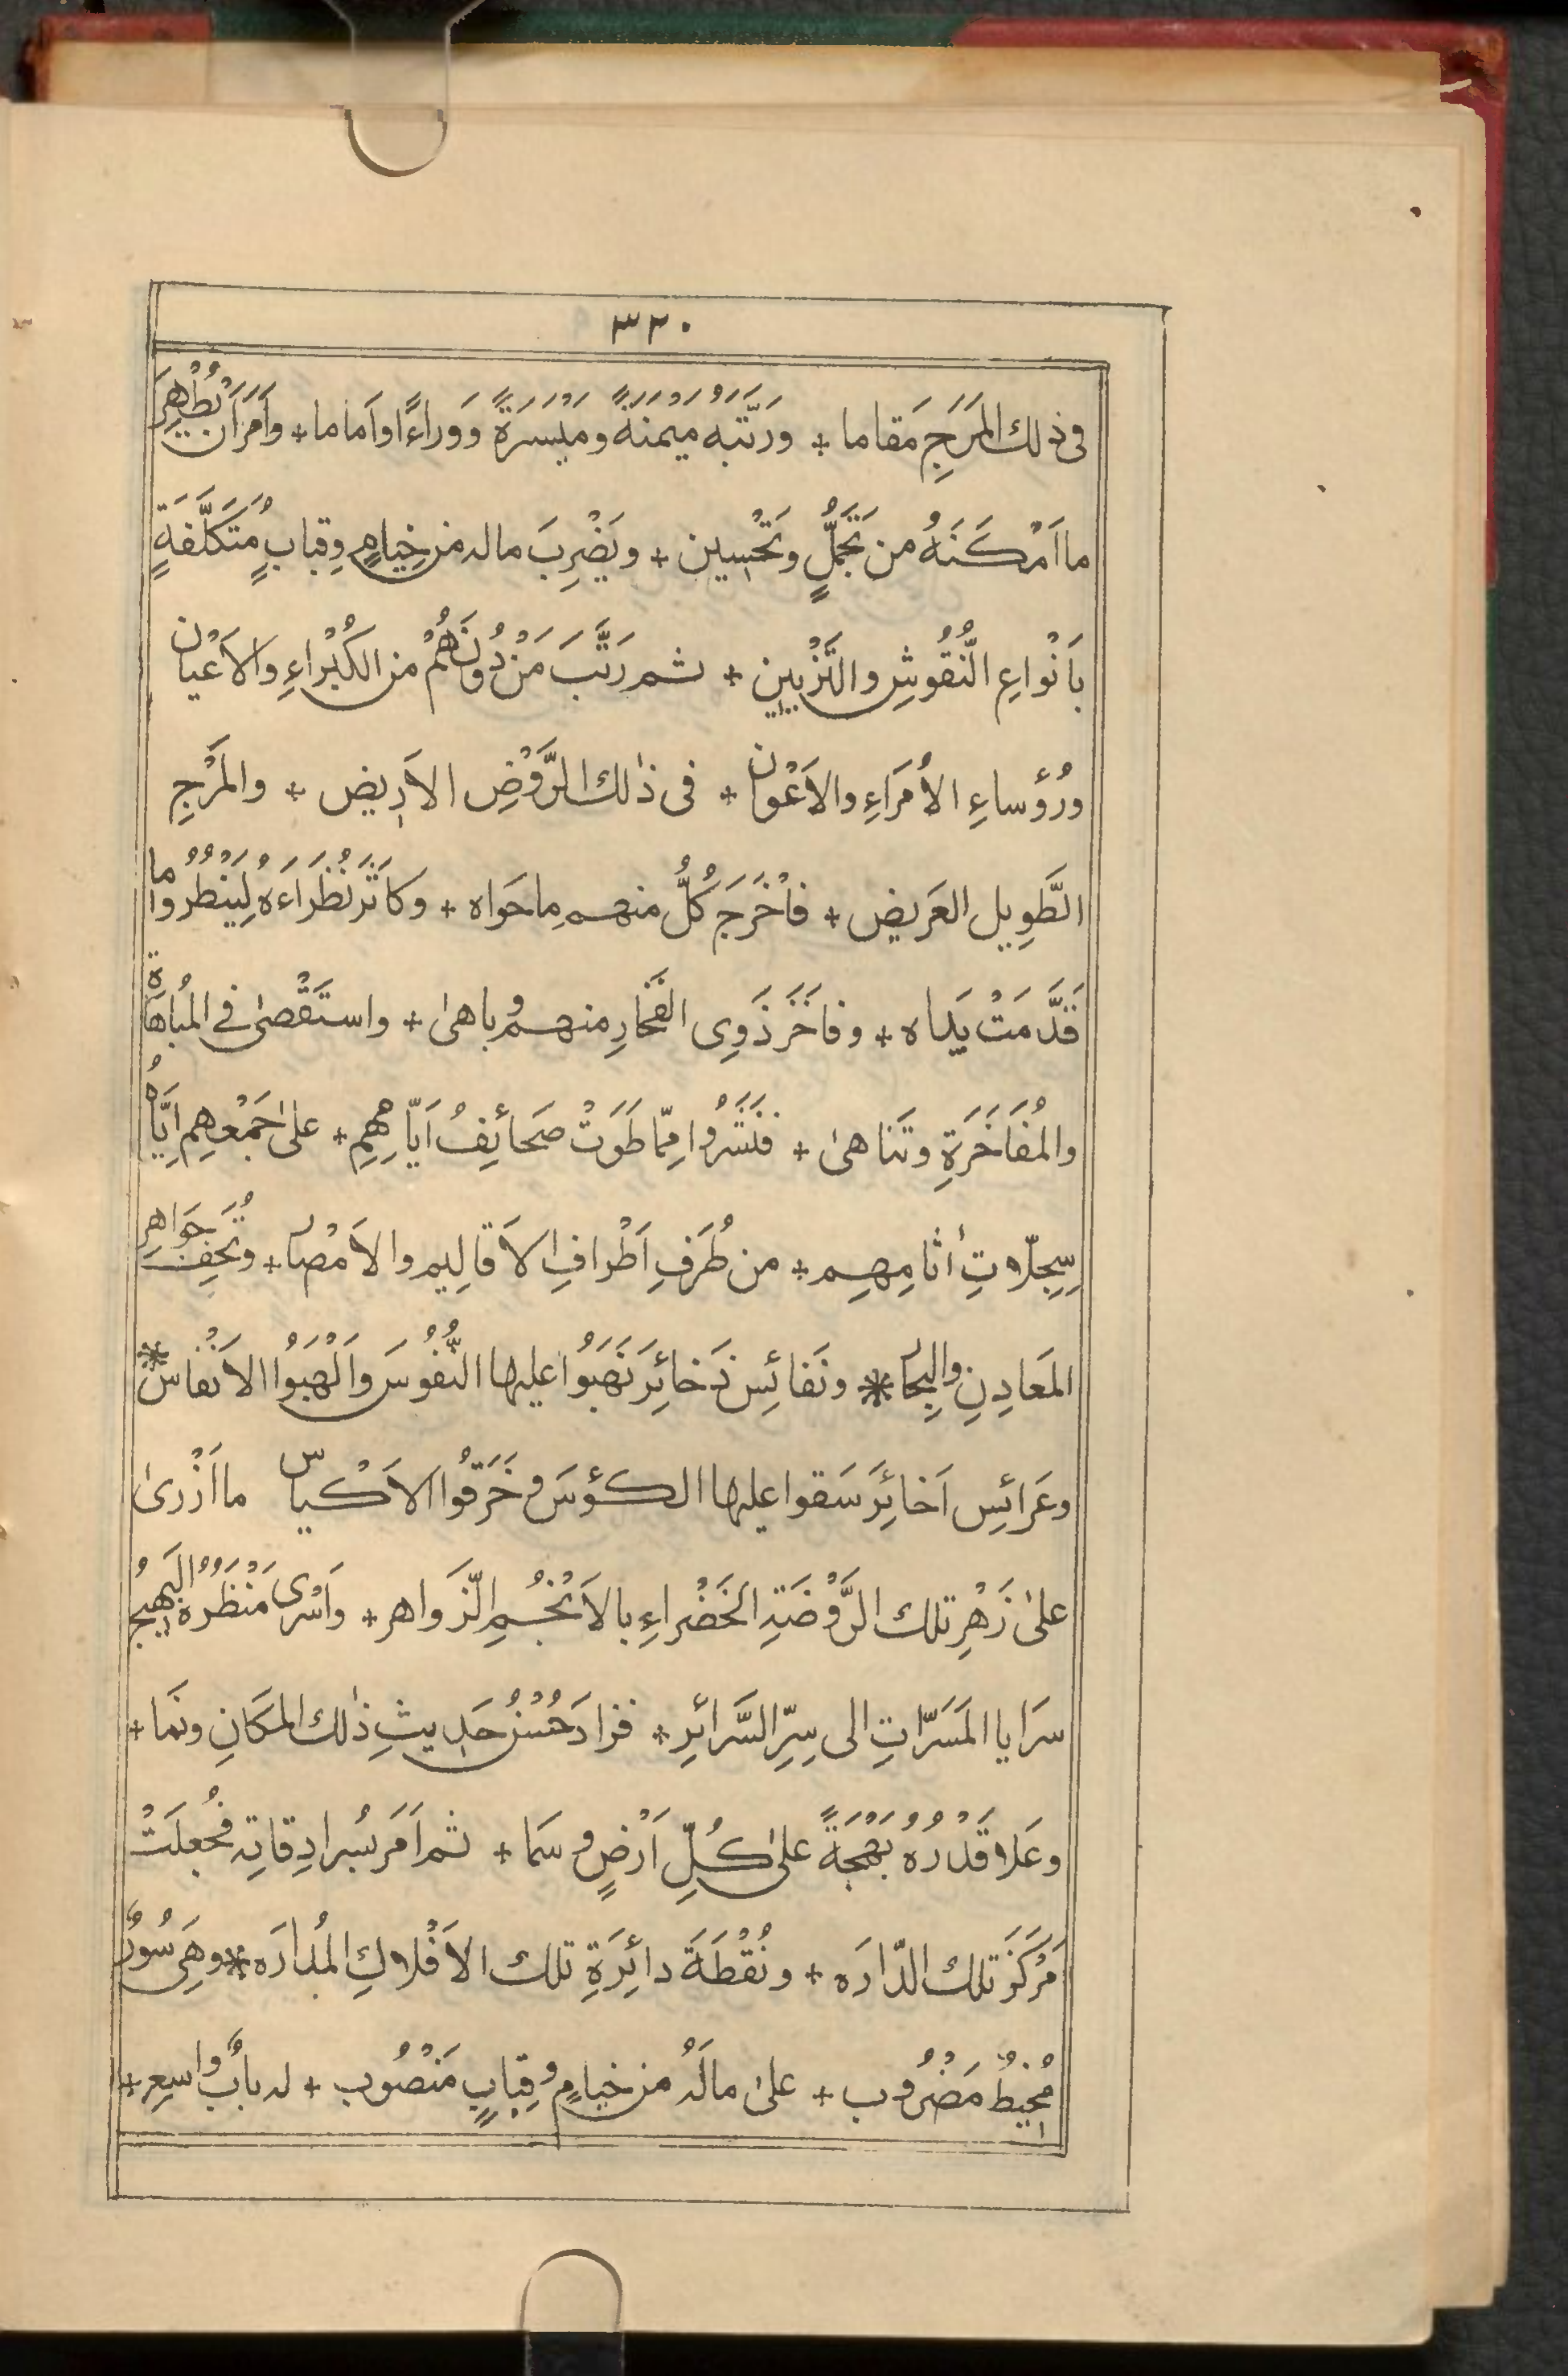 ٣٢٠
فى ذلك المَرَجِ مَقاما + ورَتَّبَه مَيْمَنةً ومَيْسَرَةً ووَراءً اواَماما + واَمَرَ اَنْ يُظْهِرَ
ما اَمْكَنَهُ من تَجَمُّلٍ وتَحْسِين + ويَضْرِبَ ماله من خِيامٍ وقِبابٍ مُتَكَلَّفَةٍ
بِاَنْواعِ النُّقُوشِ والتَّزْيِين + ثم رَتَّبَ مَنْ دُونَهُمْ من الكُبَراءِ والاَعْيان
ورُؤَساءِ الأُمَراءِ والاَعْوان + فى ذٰلك الرَّوْضِ الاَرِيض + والمَرْجِ
الطَّوِيل العَرِيض + فاَخْرَجَ كُلٌّ منهم ما حَواه + وكاثَرَ نُظَراءَهُ لِيَنْظُرُوا ما
قَدَّمَتْ يَداه + وفاخَرَ ذَوِى الفَخارِ منهم وباهىٰ + واستَقْصىٰ فے المُباهاة
والمُفاخَرَةِ وتَناهىٰ + فنَشَرُوا مِمّا طَوَتْ صَحائِفُ اَيّامِهِم + علىٰ جَمْعِهِم اِيّاهُ
سِجِلّاتِ أثامِهِم + من طُرَفِ اَطْرافِ الاَقالِيم والاَمْصار + وتُحَفِ جَواهِر
المَعادِنِ والبِحار * ونَفائِسِ ذَخائِرَ نَهَبُوا عليها النُّفُوسَ واَلْهَبُوا الاَنْفاسَ *
وعَرائِسِ اَخائِرَ سَقوا عليها الكؤسَ وخَرَقُوا الاَكْياس ما اَزْرىٰ
علىٰ زَهْرِ تلك الرَّوْضَةِ الخَضْراءِ بالاَنْجُمِ الزَّواهر + واَسْرى مَنْظَرُهُ البَهِيجُ
سَرايا المَسَرّاتِ الى سِرِّ السَّرائرِ + فزادَ حُسْنُ حَدِيثِ ذٰلك المكَانِ ونَما +
وعَلا قَدْرُهُ بَهْجَةً علىٰ كُلِّ اَرْضٍ وسَما + ثم اَمَرَ بسُرادِقاتِه فجُعِلَتْ
مَرْكَزَ تلك الدّارَه + ونُقْطَةَ دائِرَةِ تلك الاَفْلاكِ المُدارَه * وهِىَ سُورٌ
مُحِيطٌ مَضْرُوب + علىٰ مالَهُ من خِيامٍ وقِبابٍ مَنْصُوب + له بابٌ واسِع +